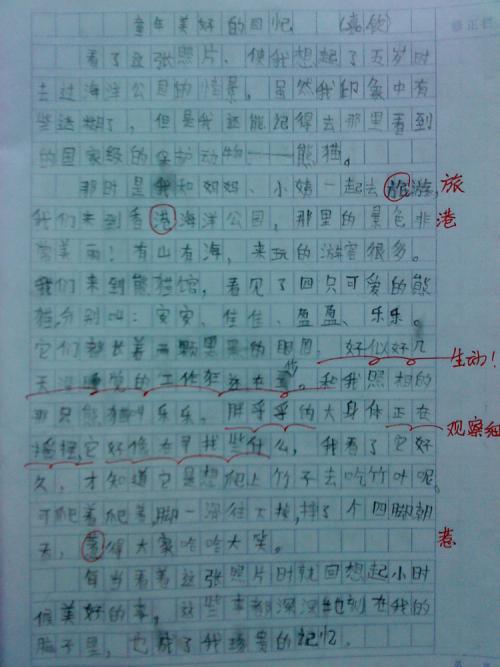 童年美好的回忆 (嘉欣)
看了这张照片,使我想起了五岁时
去过海洋公园的情景。虽然我印象中有
些迷糊了,但是我还能记得去那里看到
的国家级的保护动物——熊猫。
那时是我和妈妈、小姨一起去旅游, 旅
我们来到香港海洋公园,那里的景色非 港
常美丽!有山有海,来玩的游客很多。
我们来到熊猫馆,看见了四只可爱的熊
猫,分别叫:安安、佳佳、盈盈、乐乐。
它们都长着两颗黑黑的眼圈,好似好几 生动!
天没睡觉的工作 。和我照相的
那只熊猫叫乐乐,胖乎乎的大身体正在 观察细
摇摆,它好像在寻找些什么,我看了它好
久,才知道它是想爬上竹子去吃竹叶呢。
可爬着爬着,脚一滑往大 摔了个四脚朝
天,惹得大家哈哈大笑。 惹
每当看着这张照片时就回想起小时
候美好的事。这些事都深深地刻在我的
脑子里,也成了我珍贵的记忆。